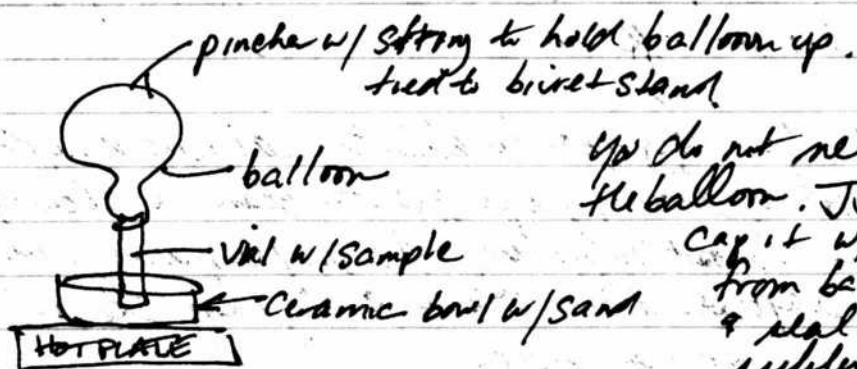 pincher w/ string to hold balloon up.
tied to buret stand
balloon
vial w/ sample
ceramic bowl w/ sand
HOT PLATE
you do not ne
the balloon. Ju
cap it w
from ba
& seal